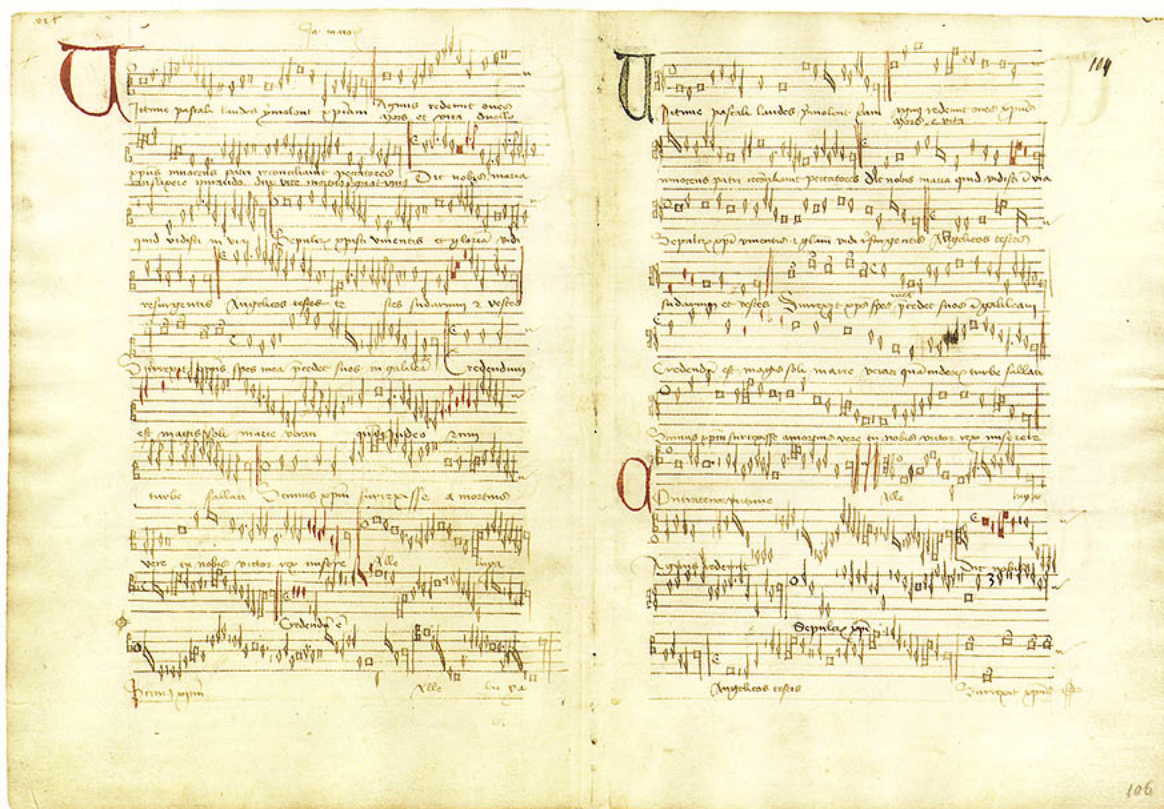 Victime pascali laudes ymolent xpiani Agnus redemit oves
Mors et vita duello
xpus innocens patri reconciliavit peccatores Dic nobis maria
conflixere mirando dux vite mortuus regnat vivus
quid vidisti in via Sepulcrum xpisti viventis et gloria vidi
resurgentis Angelicos testes te stes sudarium et vestes
Surrexit xpus spes mea precedet suos in galilea Credendum
est magis soli marie veraci
turbe fallaci Scimus xpm surrexisse a mortuis
vere tu nobis victor rex misere Alle luya
Credendum e
Scimus xpm Alle lu ya
104
Victime pascali laudes ymolent agnus redemit oves xpus
Mors et vita
innocens patri reconciliavit peccatores dic nobis maria quid vidisti in via
Sepulcrum xpi viventis et gloriam vidi resurgentis Angelicos testes
sudarium et vestes Surrexit xpus spes mea precedet suos in galileam
Credendum est magis soli marie veraci quam iudeorum turbe fallaci
Scimus xpm surrexisse a mortuis vere tu nobis victor rex miserere
Contratenor victime Alle luya
Agnus redemit Dic nobis
Sepulcrum xpi
Angelicos testes Surrexit xpus
106